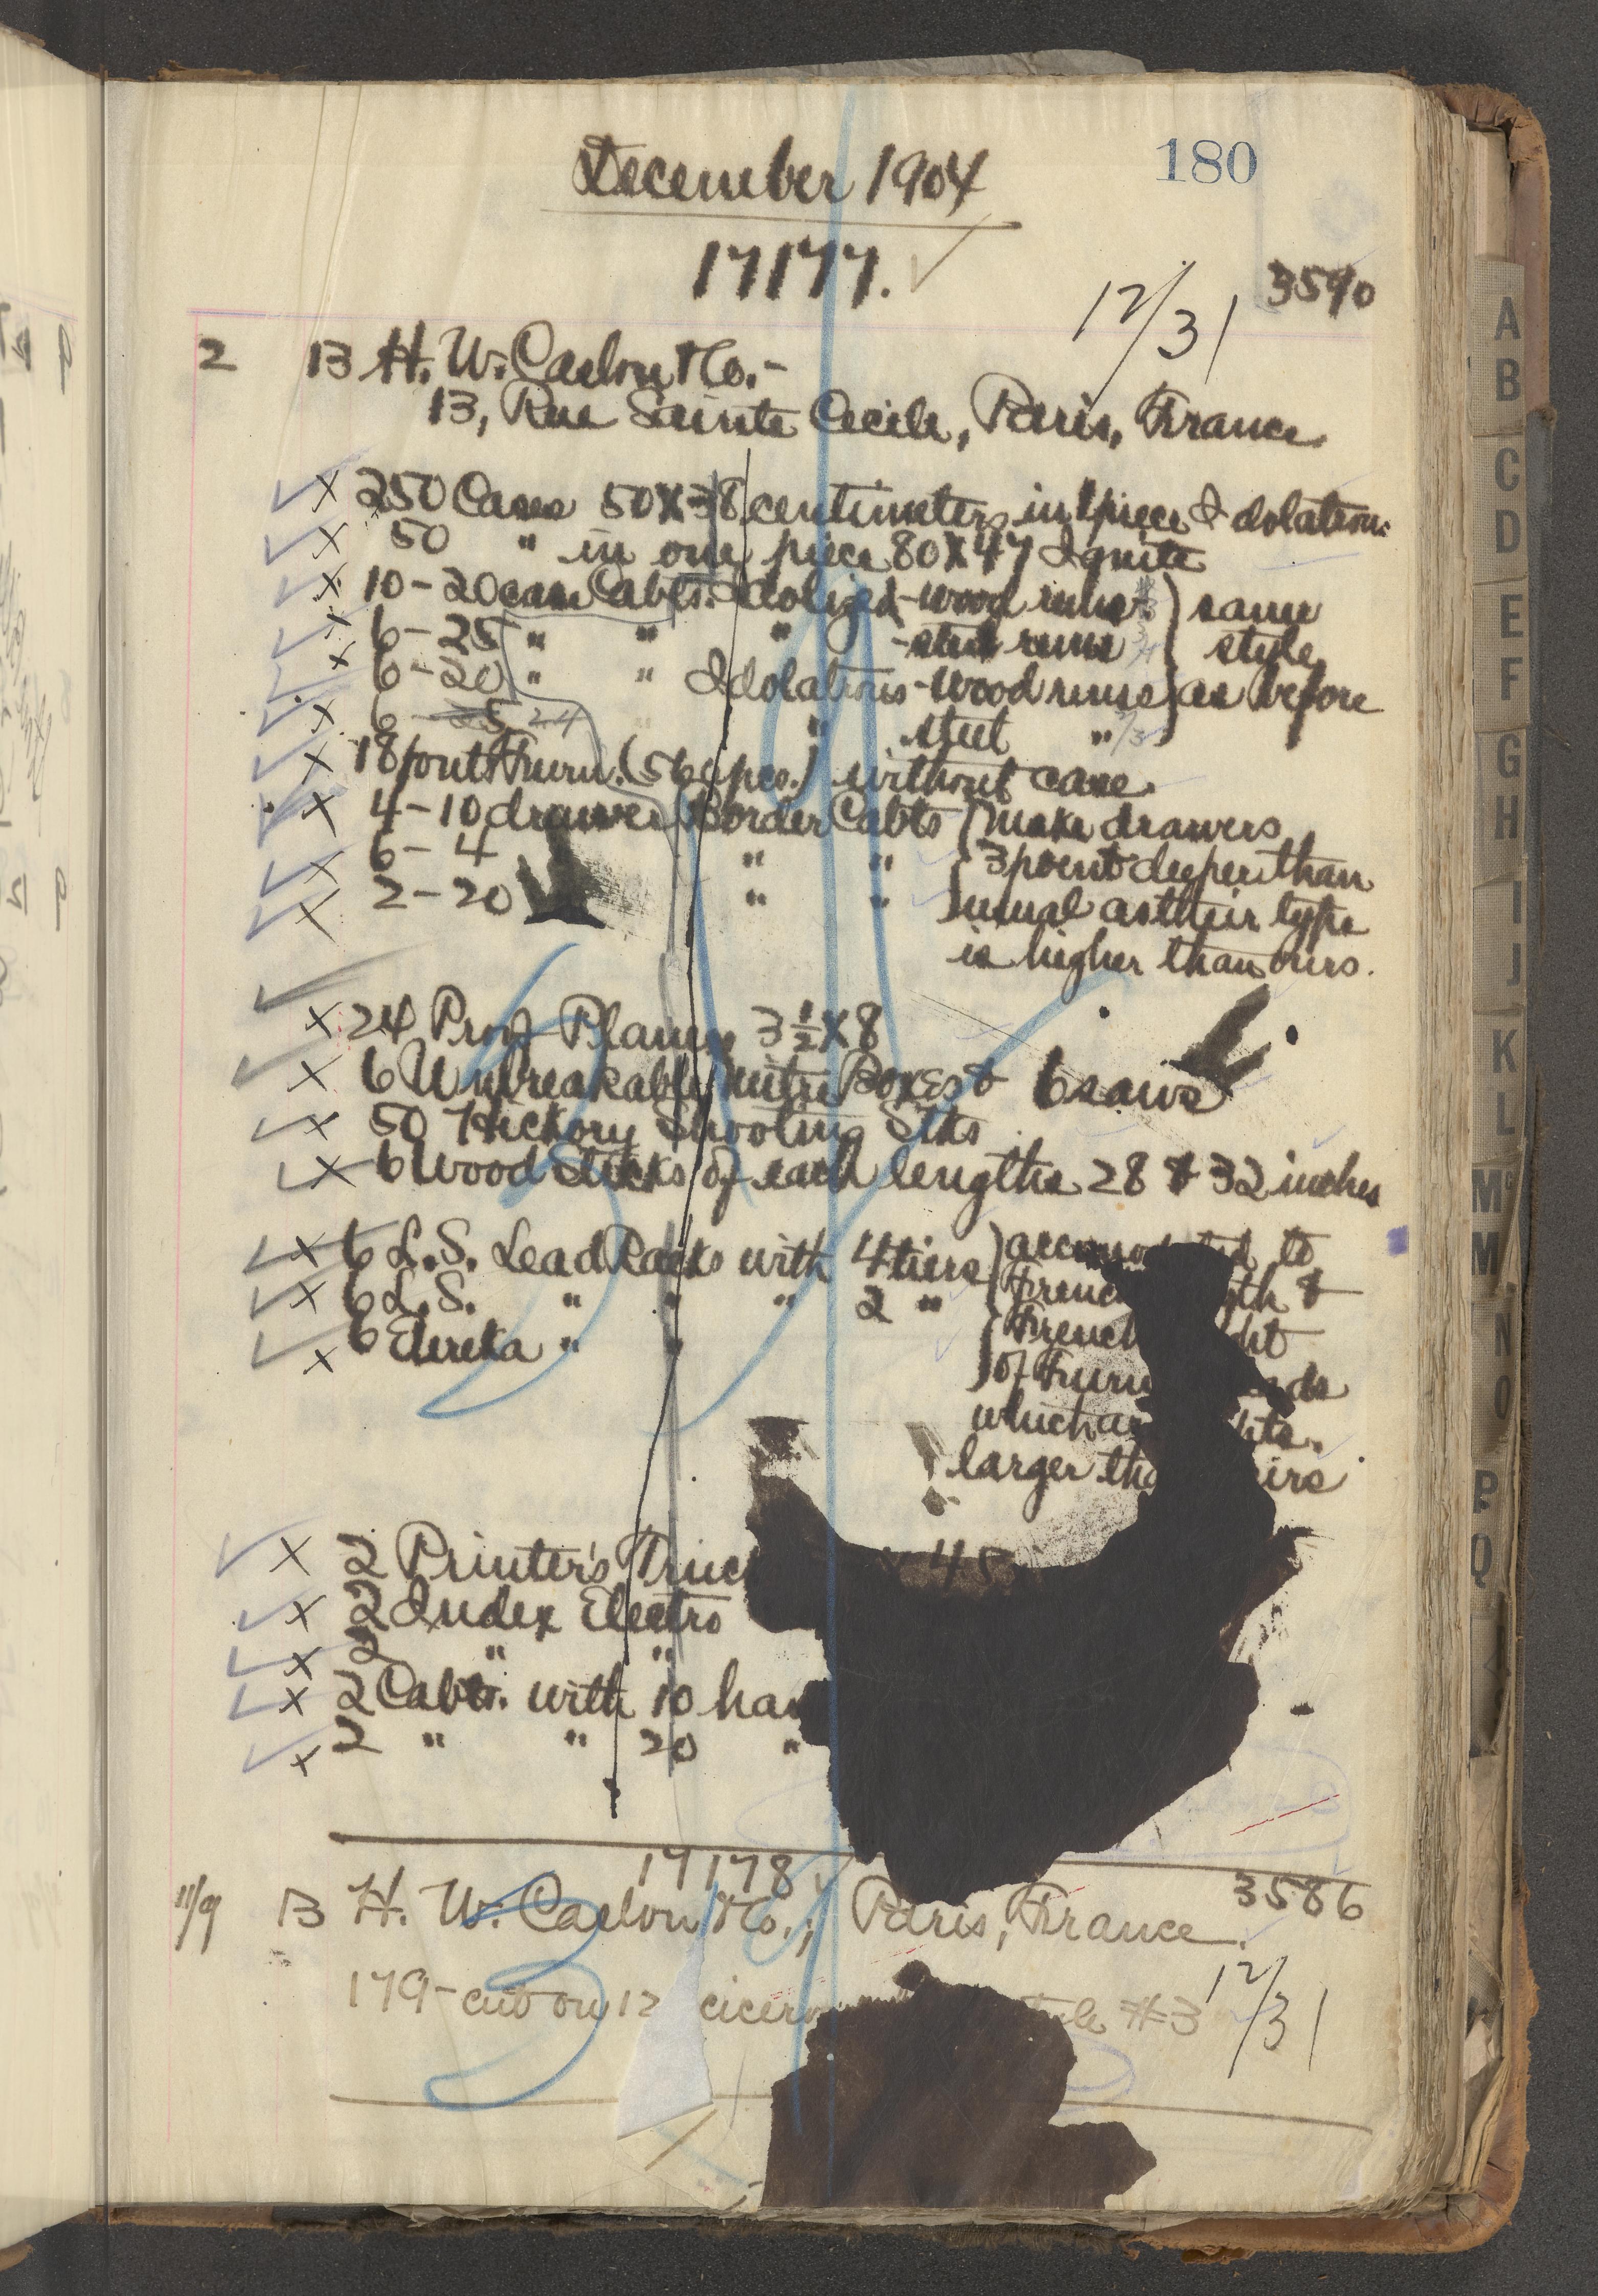 December 1904
180
17177.
12/31
3590
2 13 H. W. Caslon & Co.-
13, Rue Sainte Cecile, Paris, France
250 Cases 50X38 centimeters in 1 piece
50 " in one piece 80X47
10-20 case Cabts. -wood runs ) same
6-25 " " " -steel runs style
6-20 " " -wood runs as before
6- 24 " steel "
18 fonts Furn. (56 pcs.) without case.
4-10 drawer Border Cabts (make drawers
6-4 " " 3 point deeper than
2-20 " " usual as their type
is higher than ours.
24 Proof Planers 3½X8
6 Unbreakable mitre Boxes & 6 saws
50 Hickory Shooting Stks
6 Wood Sticks of each lengths 28 & 32 inches
6 L.S. Lead Racks with 4 tiers to
6 L.S. " " " 2 " &
6 Eureka " " French
of
which
larger
2 Printer's 45
2 Index Electro
2 " "
2 Cabts. with 10
2 " " 20 "
17178
3586
11/9 13 H. W. Caslon & Co., Paris, France.
12/31
179-cut on 12 #3
A
B
C
D
E
F
G
H
I
J
K
L
Mc
M
N
O
P
Q